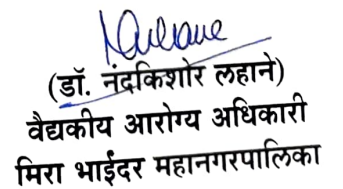 (डॉ. नंदकिशोर लहाने)
वैद्यकीय आरोग्य अधिकारी
मिरा भाईंदर महानगरपालिका